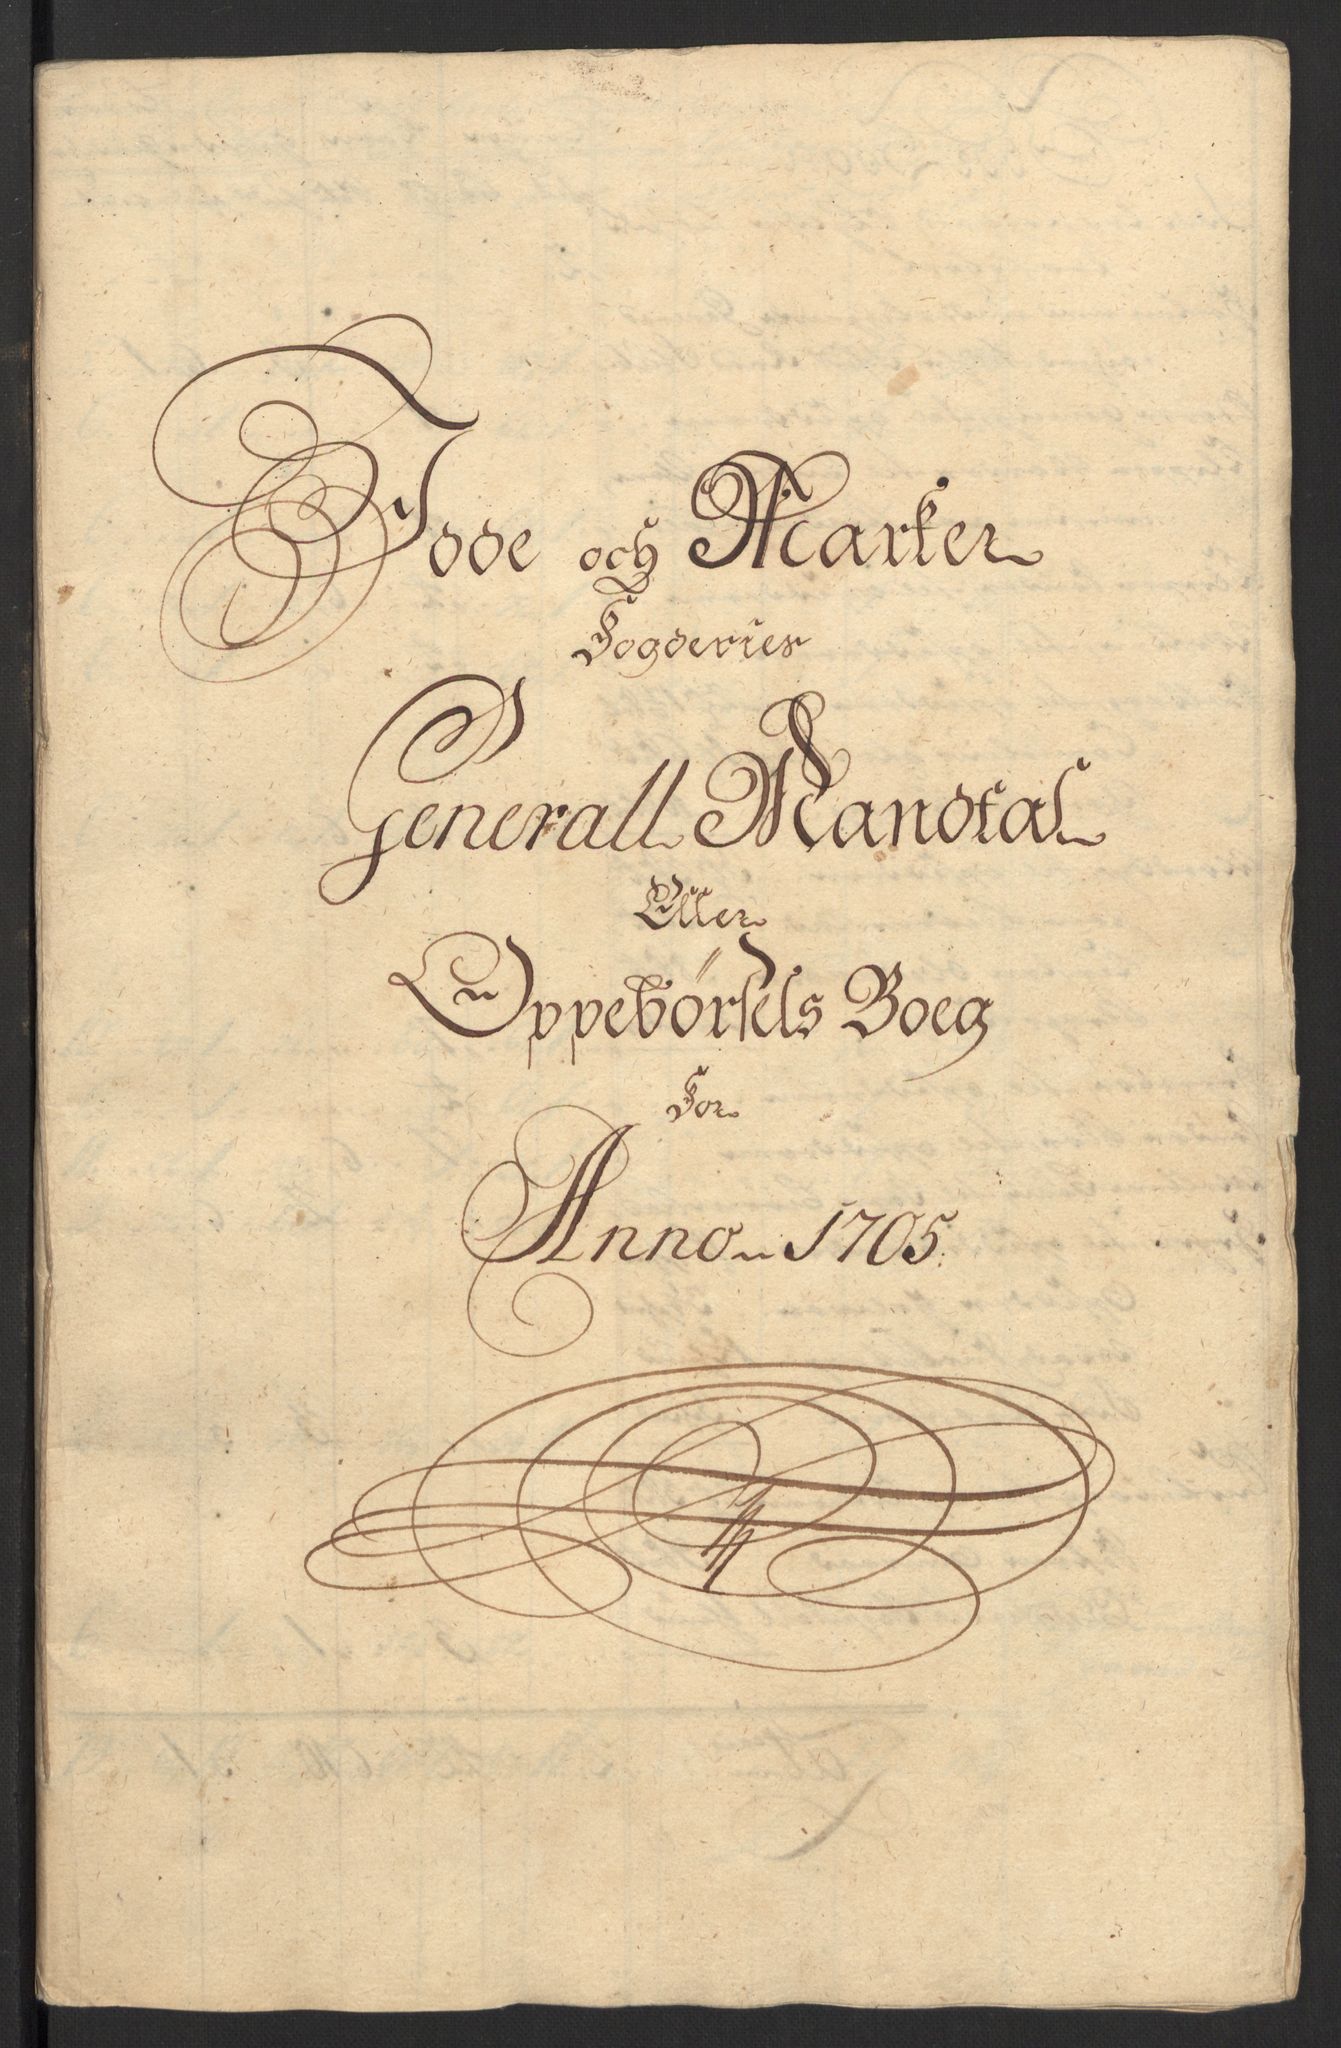 Idde och Marker
Fogderies
Generall Mandtal
Eller
Oppebörsels Boeg
For
Anno 1705